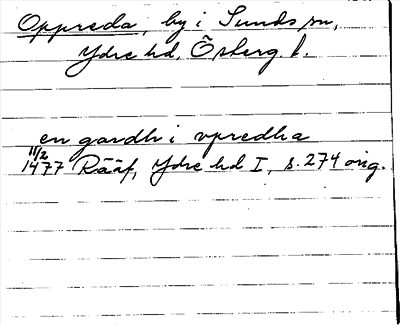 Oppreda, by i Sunds sn,
Ydre hd, Östergl.
en gardh i vpredha
11/2
1477 Rääf, Ydre hd I, s. 274 orig.